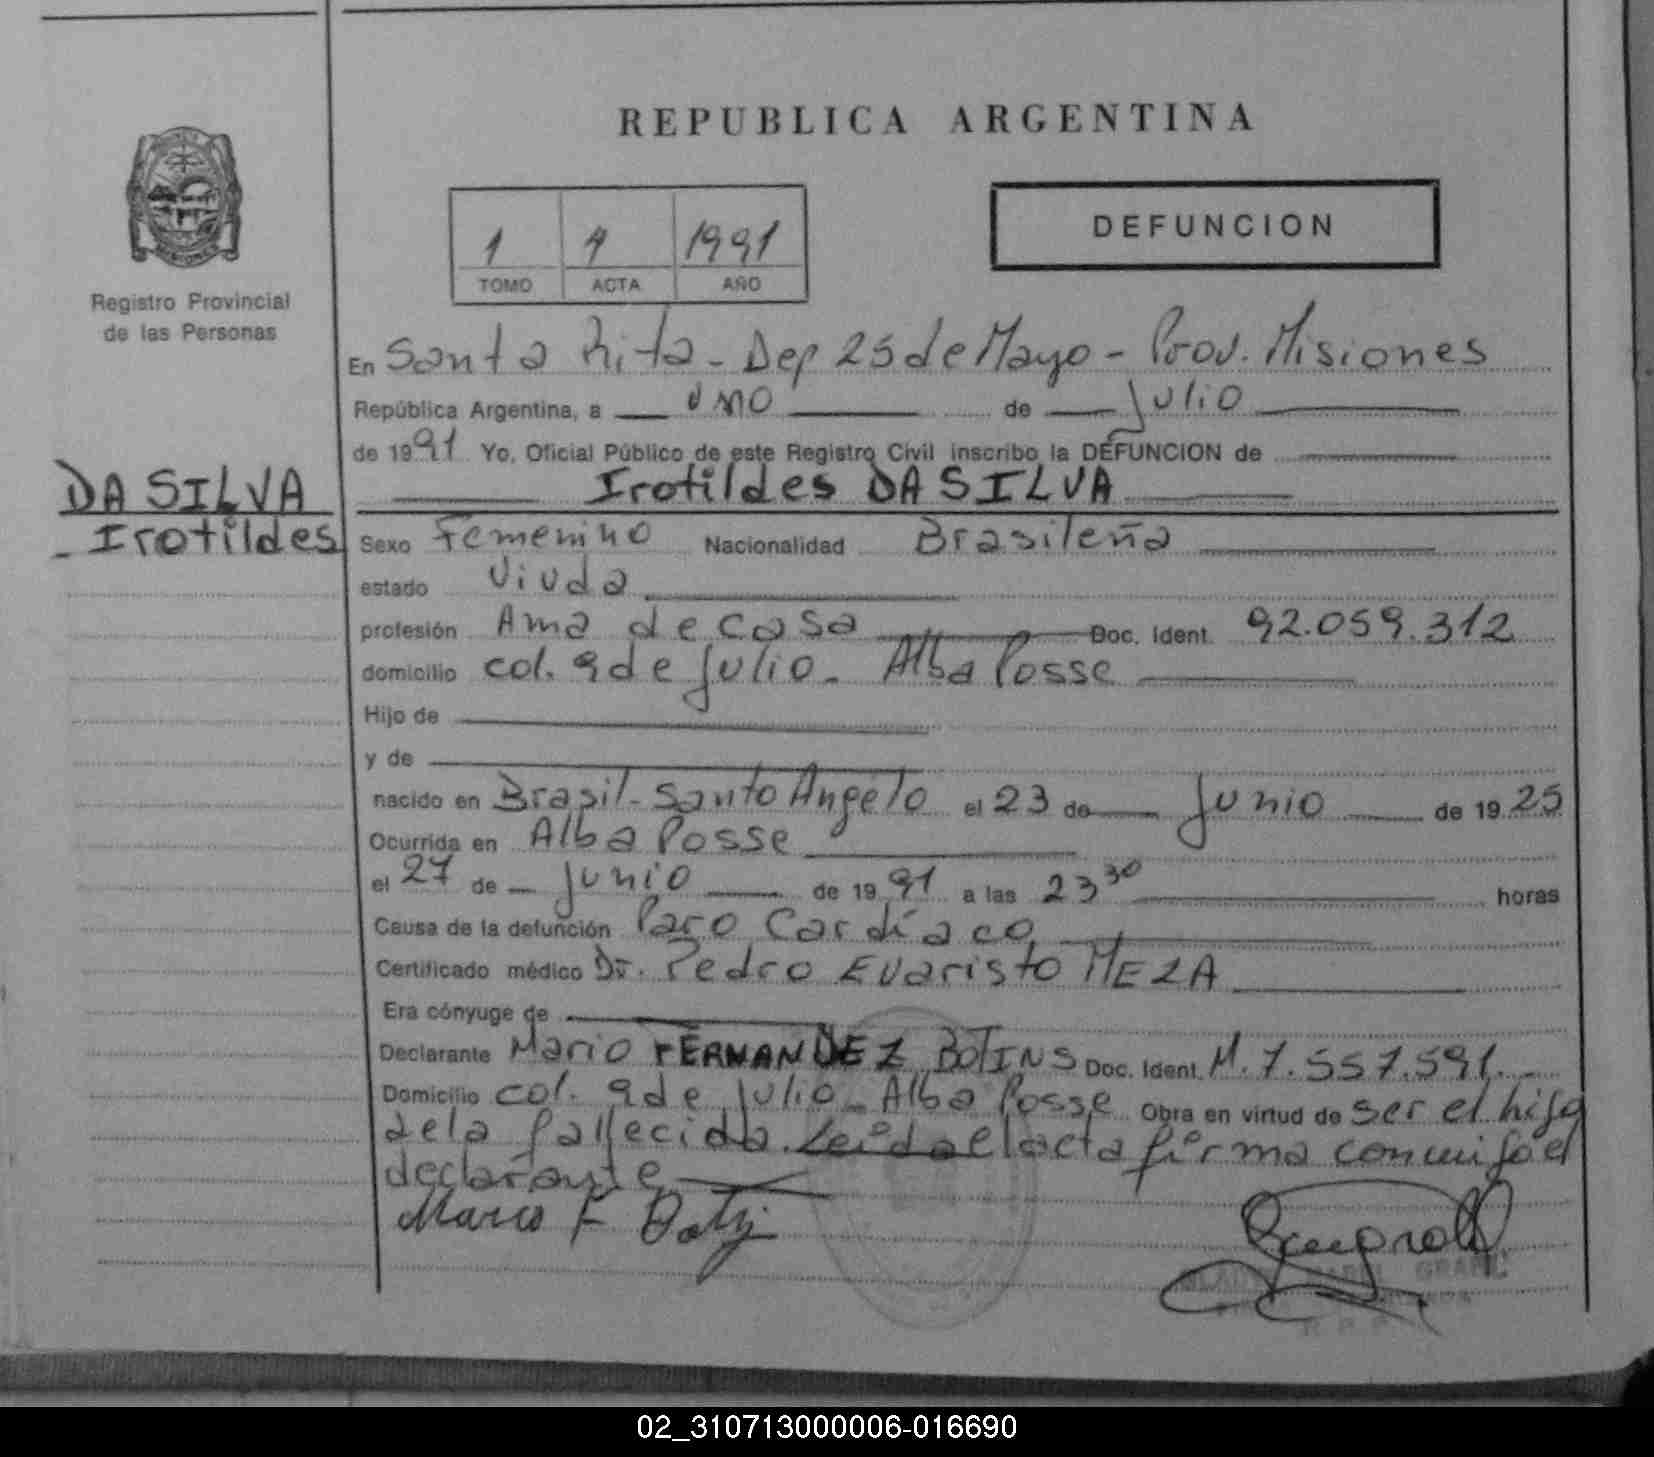 REPUBLICA ARGENTINA
DEFUNCION
1 1991
TOMO ACTA AÑO
Registro Provincial
de las Personas
En Santa Rita - Dep 25 de Mayo - Prov. Misiones
República Argentina, a uno de Julio
de 1991 Yo, Oficial Público de este Registro Civil inscribo la DEFUNCION de
Irotildes DA SILVA
DA SILVA
Irotildes
Sexo Femenino Nacionalidad Brasileña
estado Viuda
profesión Ama de casa Doc. Ident. 92.059.312
domicilio col. 9 de Julio - Alba Posse
Hijo de
y de
nacido en Brasil - Santo Angelo el 23 de Junio de 1925
Ocurrida en Alba Posse
el 27 de Junio de 1991 a las 23 30 horas
Causa de la defunción Paro Cardíaco
Certificado médico Dr. Pedro Evaristo MEZA
Era cónyuge de
Declarante Mario FERNANDEZ BOTINS Doc. Ident. M. 7.557.591.-
Domicilio col. 9 de Julio - Alba Posse Obra en virtud de ser el hijo
de la fallecida. Leida el acta firma conmigo el
declarante
Mario F
02_310713000006-016690